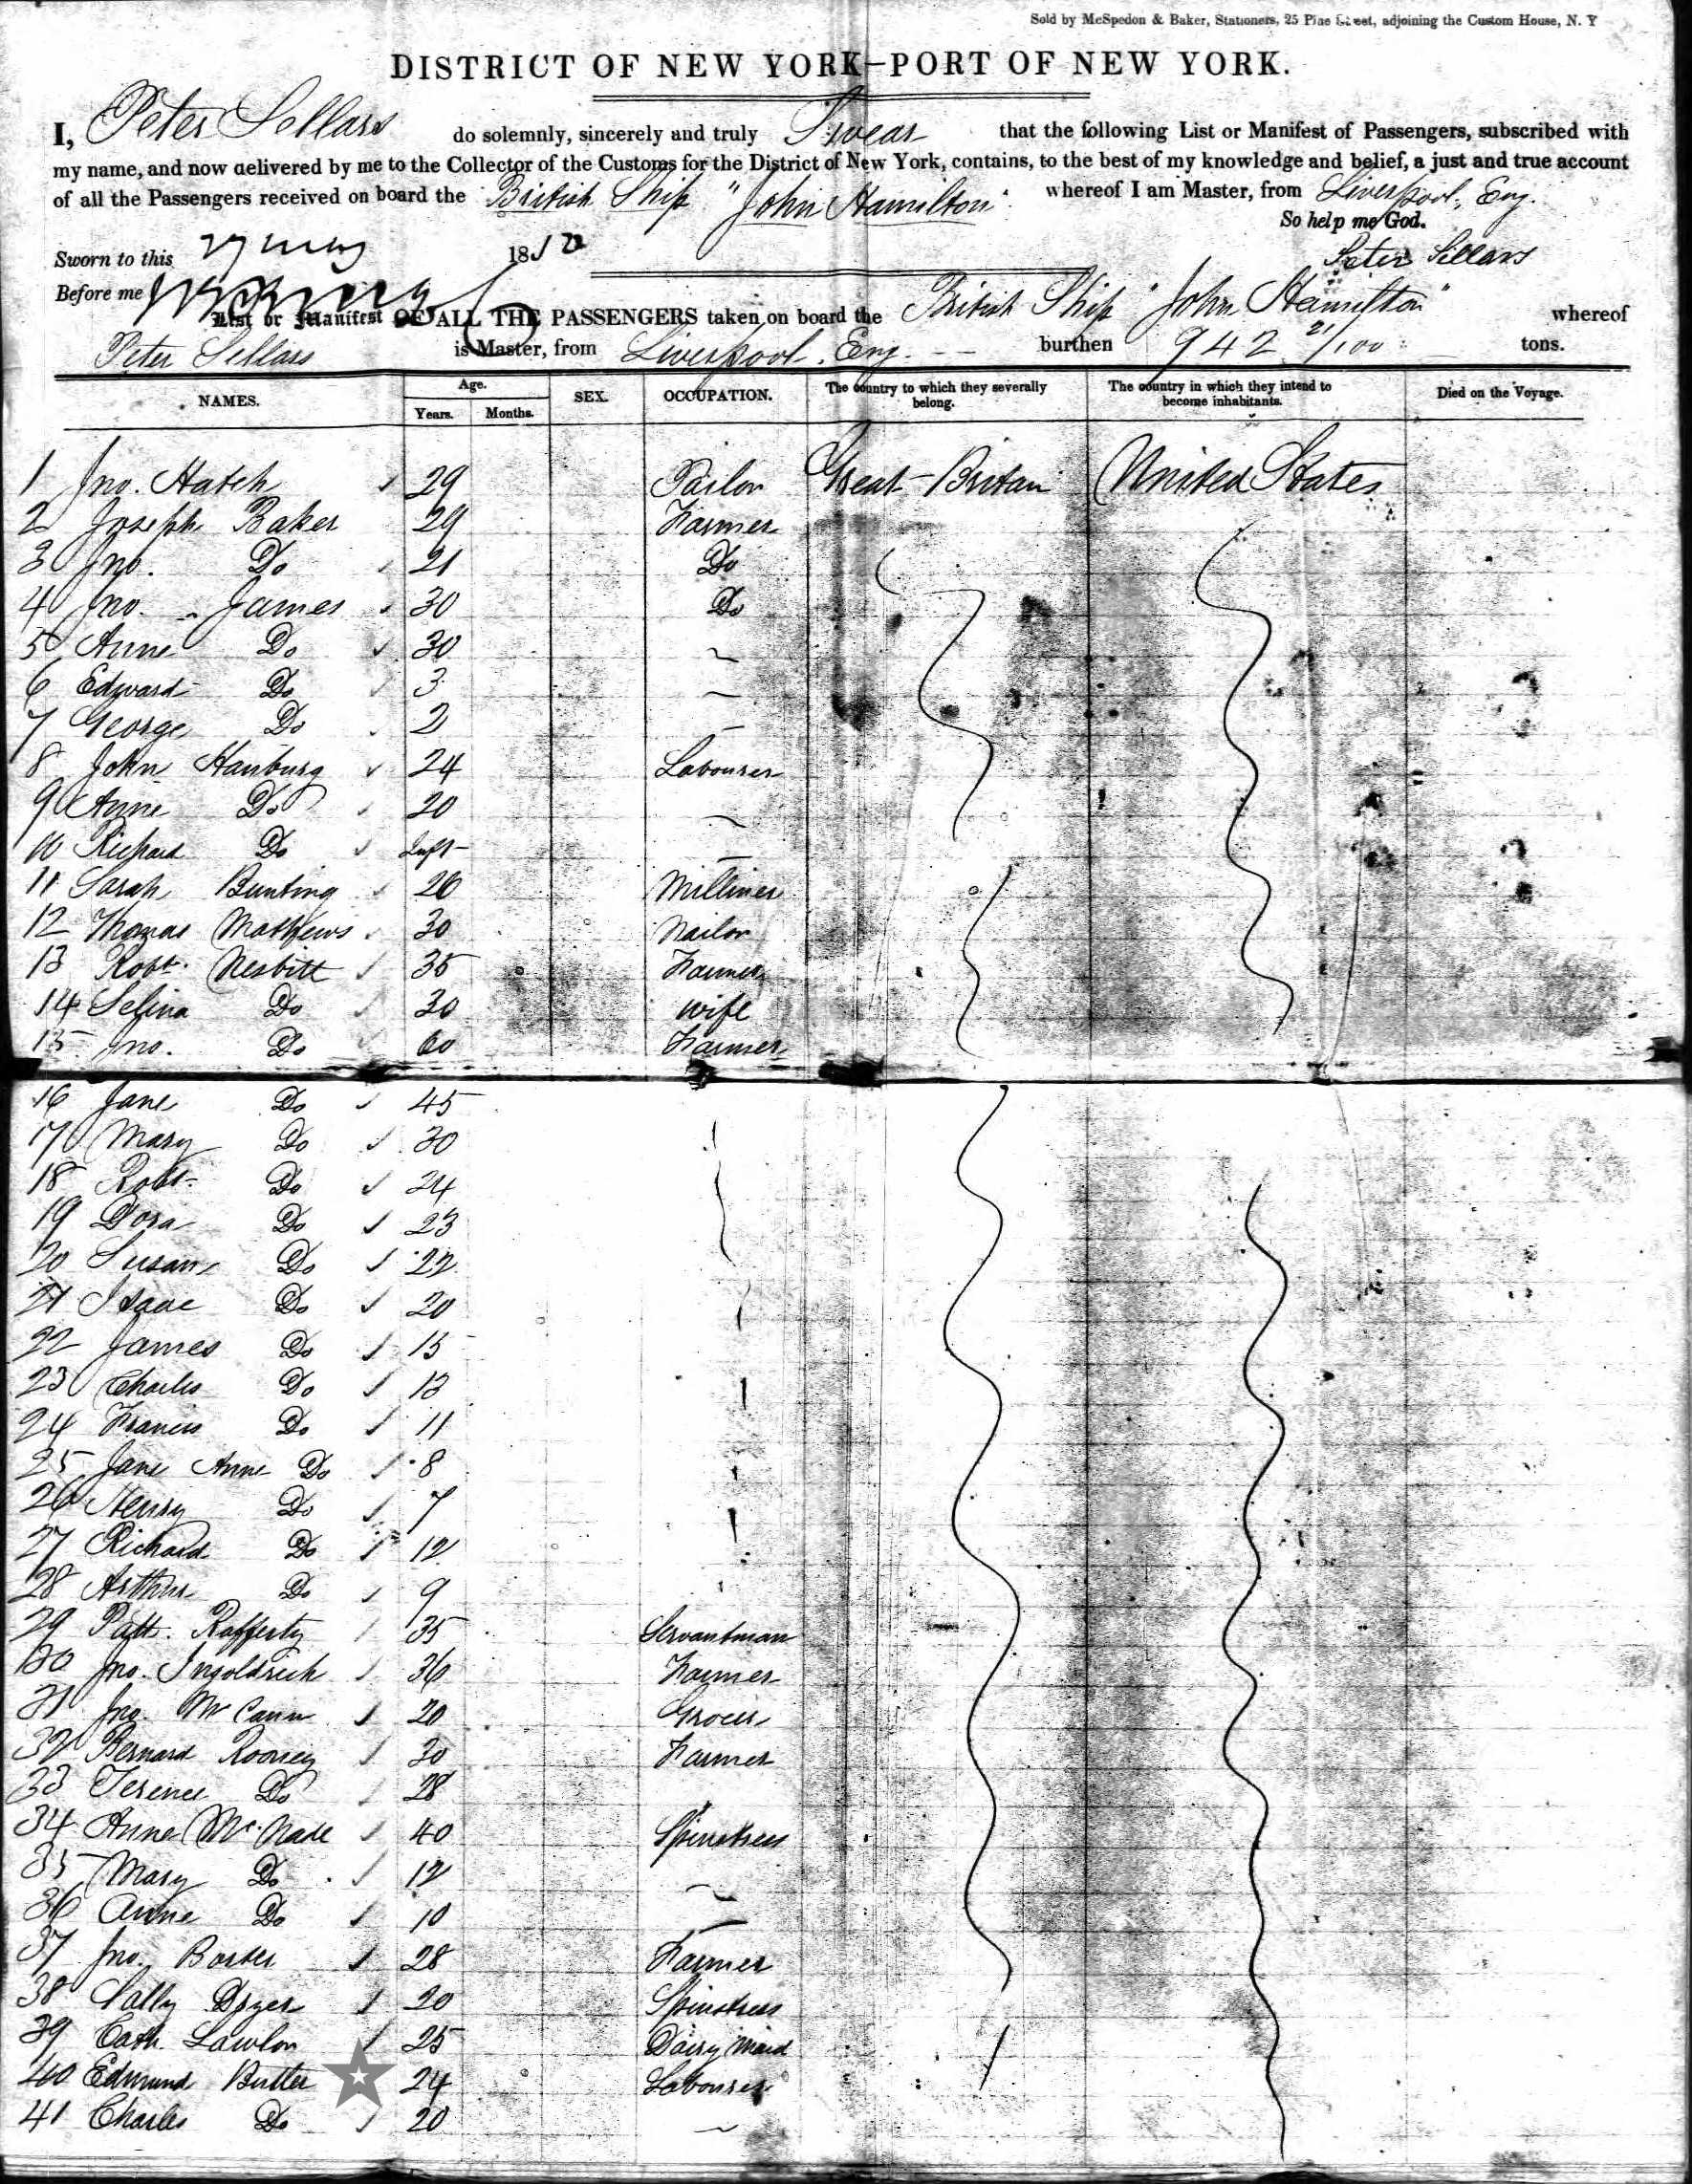 Sold by McSpedon & Baker, Stationers, 25 Pine Street, adjoining the Custom House, N. Y
DISTRICT OF NEW YORK—PORT OF NEW YORK.
I, Peter Sellars do solemnly, sincerely and truly Swear that the following List or Manifest of Passengers, subscribed with
my name, and now delivered by me to the Collector of the Customs for the District of New York, contains, to the best of my knowledge and belief, a just and true account
of all the Passengers received on board the British Ship "John Hamilton" whereof I am Master, from Liverpool, Eng.
So help me God.
Sworn to this 27 May 18
Peter Sellars
Before me
List or Manifest OF ALL THE PASSENGERS taken on board the British Ship "John Hamilton" whereof
Peter Sellars is Master, from Liverpool, Eng. burthen 942 21/100 tons.
NAMES. Age. Years. Months. SEX. OCCUPATION. The country to which they severally belong. The country in which they intend to become inhabitants. Died on the Voyage.
1 Jno. Hatch 29 Tailor Great-Britain United States
2 Joseph Baker 29 Farmer
3 Jno. Do 21 Do
4 Jno. James 30 Do
5 Anne Do 30
6 Edward Do 3
7 George Do 2
8 John Hanbury 24 Labourer
9 Anne Do 20
10 Richard Do Inft
11 Sarah Bunting 26 Milliner
12 Thomas Mathews 30 Nailor
13 Robt. Nesbitt 35 Farmer
14 Selina Do 30 Wife
15 Jno. Do 60 Farmer
16 Jane Do 45
17 Mary Do 30
18 Robt. Do 24
19 Dora Do 23
20 Susan Do 22
21 Isaac Do 20
22 James Do 15
23 Charles Do 13
24 Francis Do 11
25 Jane Anne Do 8
26 Henry Do 7
27 Richard Do 12
28 Arthur Do 9
29 Patt. Rafferty 35 Servantman
30 Jno. Ingoldrick 36 Farmer
31 Jno. McCann 20 Grocer
32 Bernard Rooney 30 Farmer
33 Terence Do 28
34 Anne McNade 40 Spinstress
35 Mary Do 12
36 Anne Do 10
37 Jno. 28 Farmer
38 Sally Dryer 20 Spinstress
39 Cath. Lawlor 25 Dairy Maid
40 Edmund Butler 24 Labourer
41 Charles Do 20